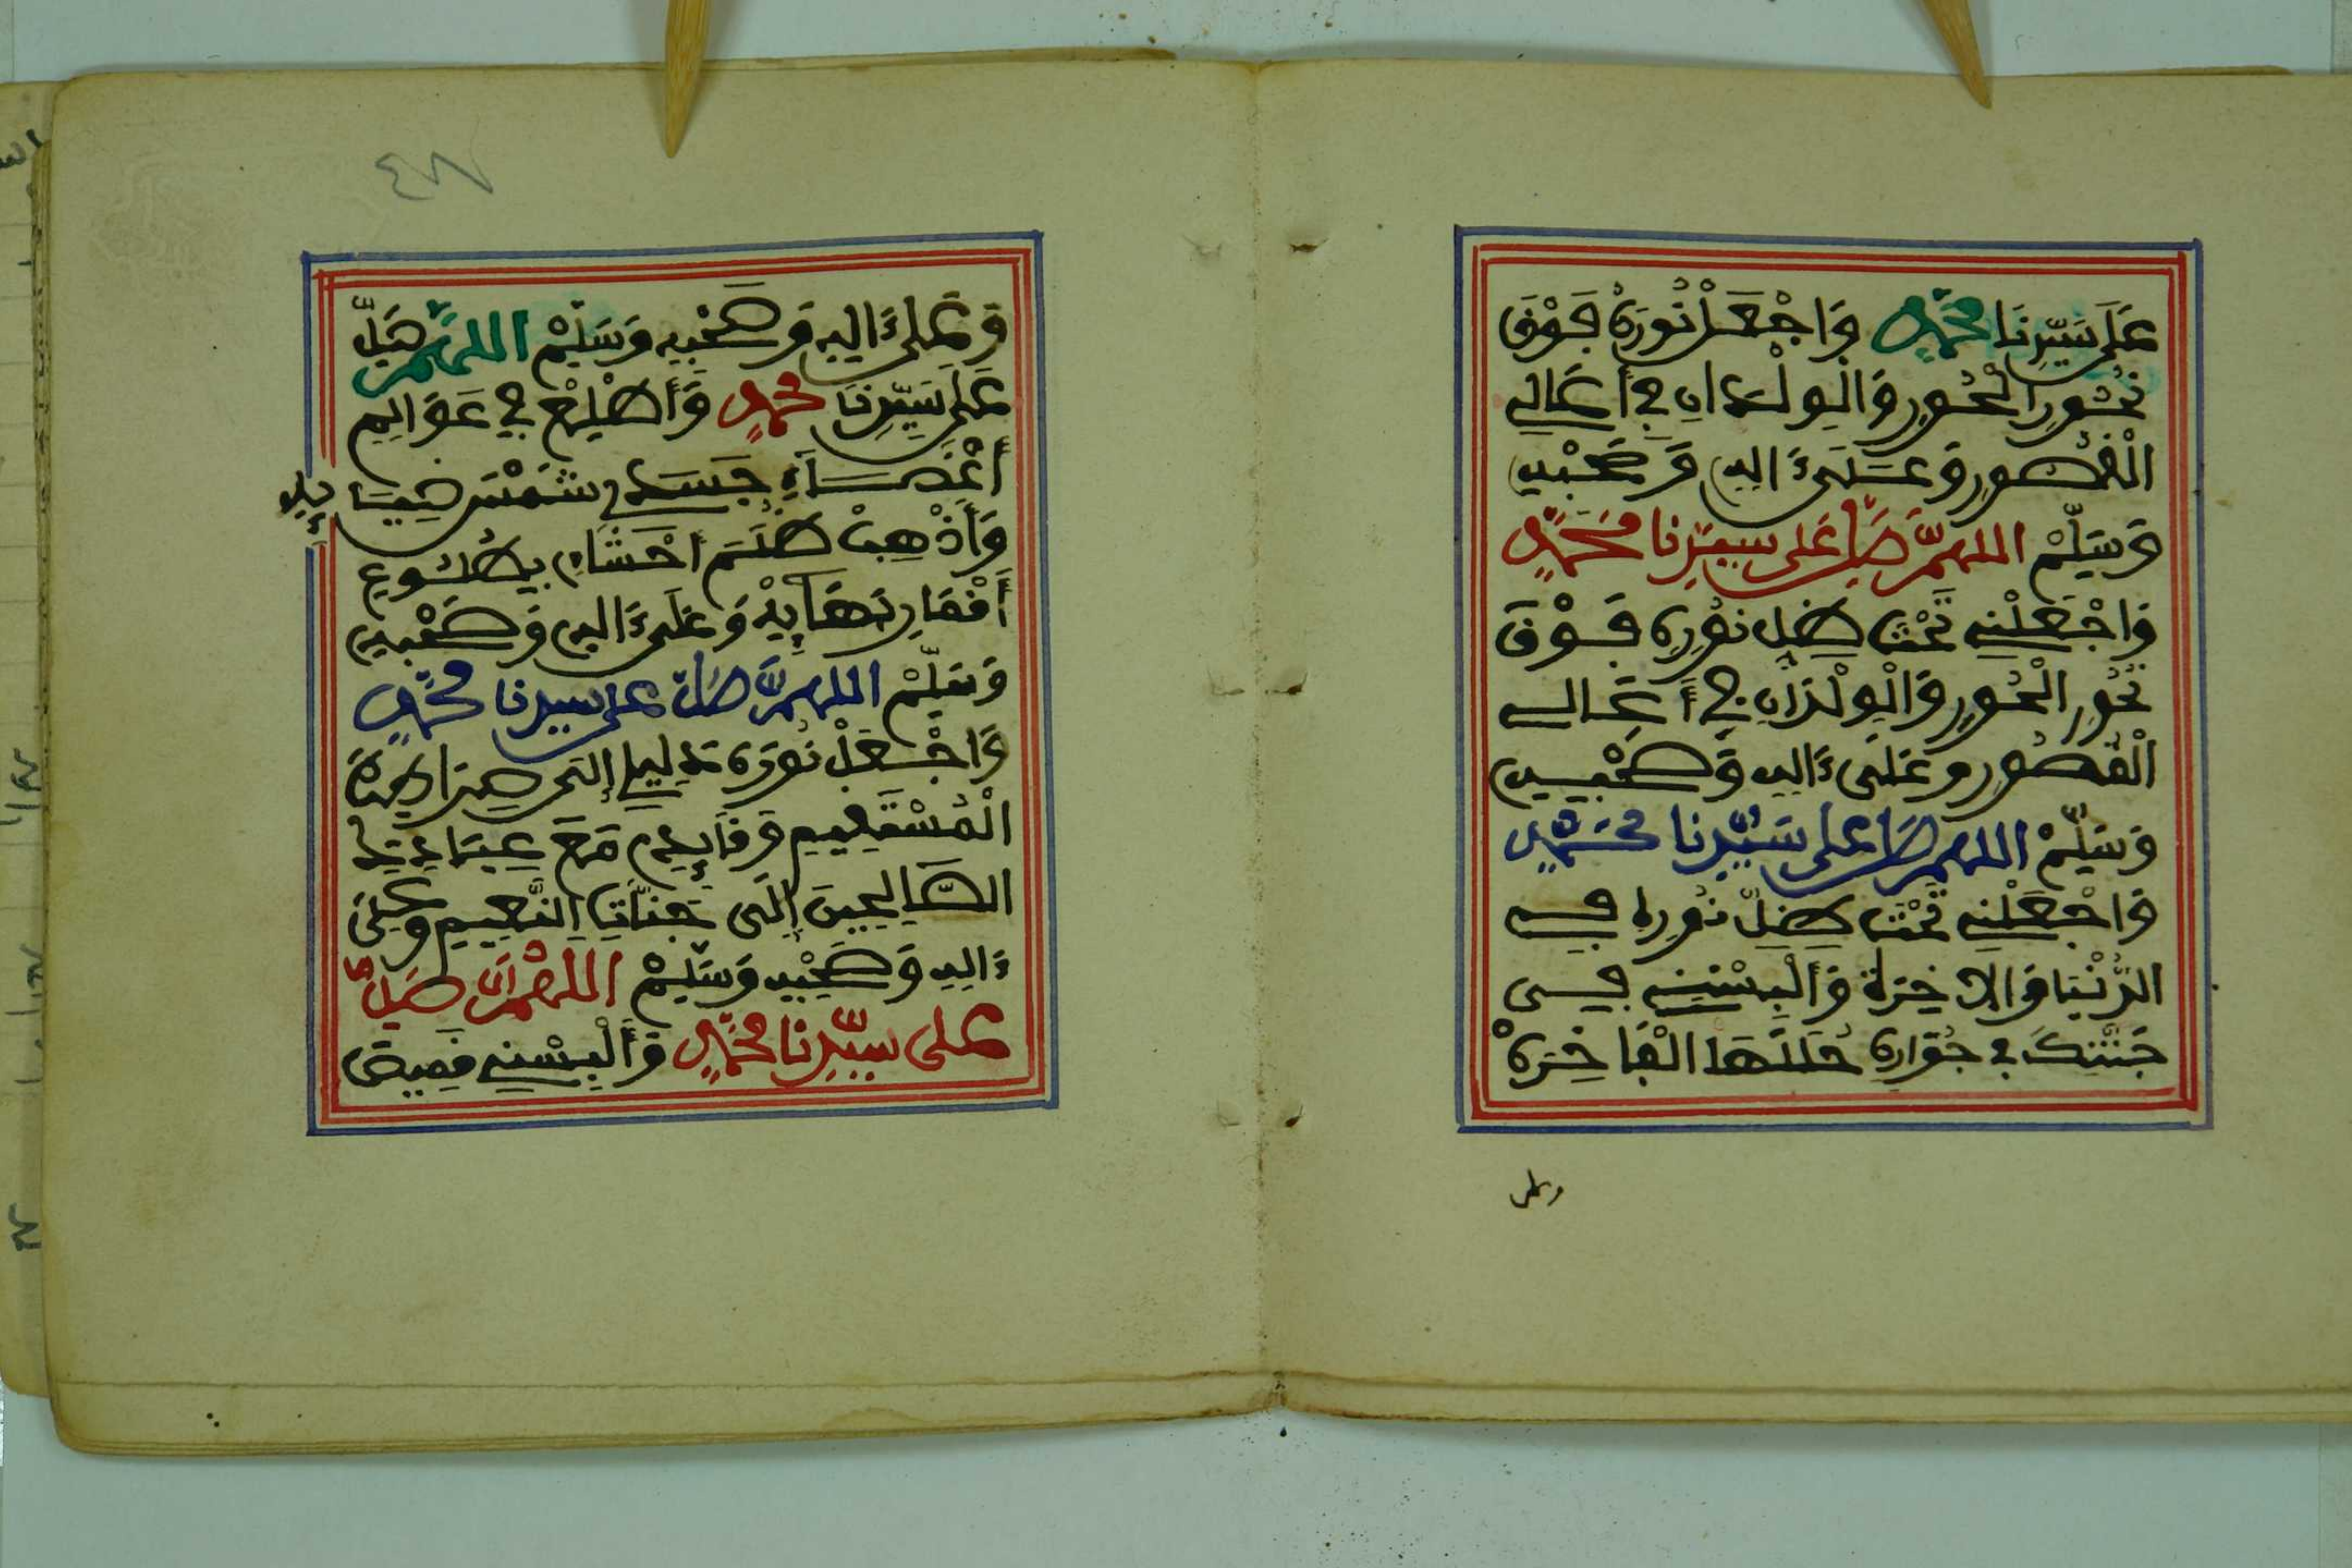 عَلَى سَيِّدِنَا مُحَمَّدٍ وَاجْعَلْ نُورَهُ فَوْقَ
نُحُورِ الْحُورِ وَالْوِلْدَانِ فِي أَعَالِي
الْقُصُورِ وَعَلَىٰ ءَالِهِ وَصَحْبِهِ
وَسَلِّمْ اللهمَّ صَلِّ عَلَى سَيِّدِنَا مُحَمَّدٍ
وَاجْعَلْنِي تَحْتَ ظِلِّ نُورِهِ فَوْقَ
نُحُورِ الْحُورِ وَالْوِلْدَانِ فِي أَعَالِي
الْقُصُورِ وَعَلَى ءَالِهِ وَصَحْبِهِ
وَسَلِّمْ اللهمَّ صَلِّ عَلَى سَيِّدِنَا مُحَمَّدٍ
وَاجْعَلْنِي تَحْتَ ظِلِّ نُورِهِ فِي
الدُّنْيَا وَالْاخِرَةِ وَأَلْبِسْنِي فِي
جَنَّتِكَ فِي جُوَارِهِ حُلَلَهَا الْفَاخِرَةْ
وعلى
وَعَلَىٰ ءَالِهِ وَصَحْبِهِ وَسَلِّمْ اللهمَّ صَلِّ
عَلَى سَيِّدِنَا مُحَمَّدٍ وَأَطْلِعْ فِي عَوَالِمِ
أَعْضَاءِ جَسَدِي شَمْسَ ضِيَائِهِ
وَأَذْهِبْ ظُلَمَ أَحْشَاءِي بِطُلُوعِ
أَقْمَارِ بَهَائِهْ وَعَلَىٰ ءَالِهِ وَصَحْبِهِ
وَسَلِّمْ اللهمَّ صَلِّ عَلَى سَيِّدِنَا مُحَمَّدٍ
وَاجْعَلْ نُورَهُ دَلِيلِي إِلَى صِرَاطِكَ
الْمُسْتَقِيمِ وَقَائِدِي مَعَ عِبَادِكَ
الصَّالِحِينَ إِلَى جَنَّاتِ النَّعِيمِ وَعَلَىٰ
ءَالِهِ وَصَحْبِهِ وَسَلِّمْ اللهمَّ صَلِّ
عَلَى سَيِّدِنَا مُحَمَّدٍ وَأَلْبِسْنِي قَمِيصَ